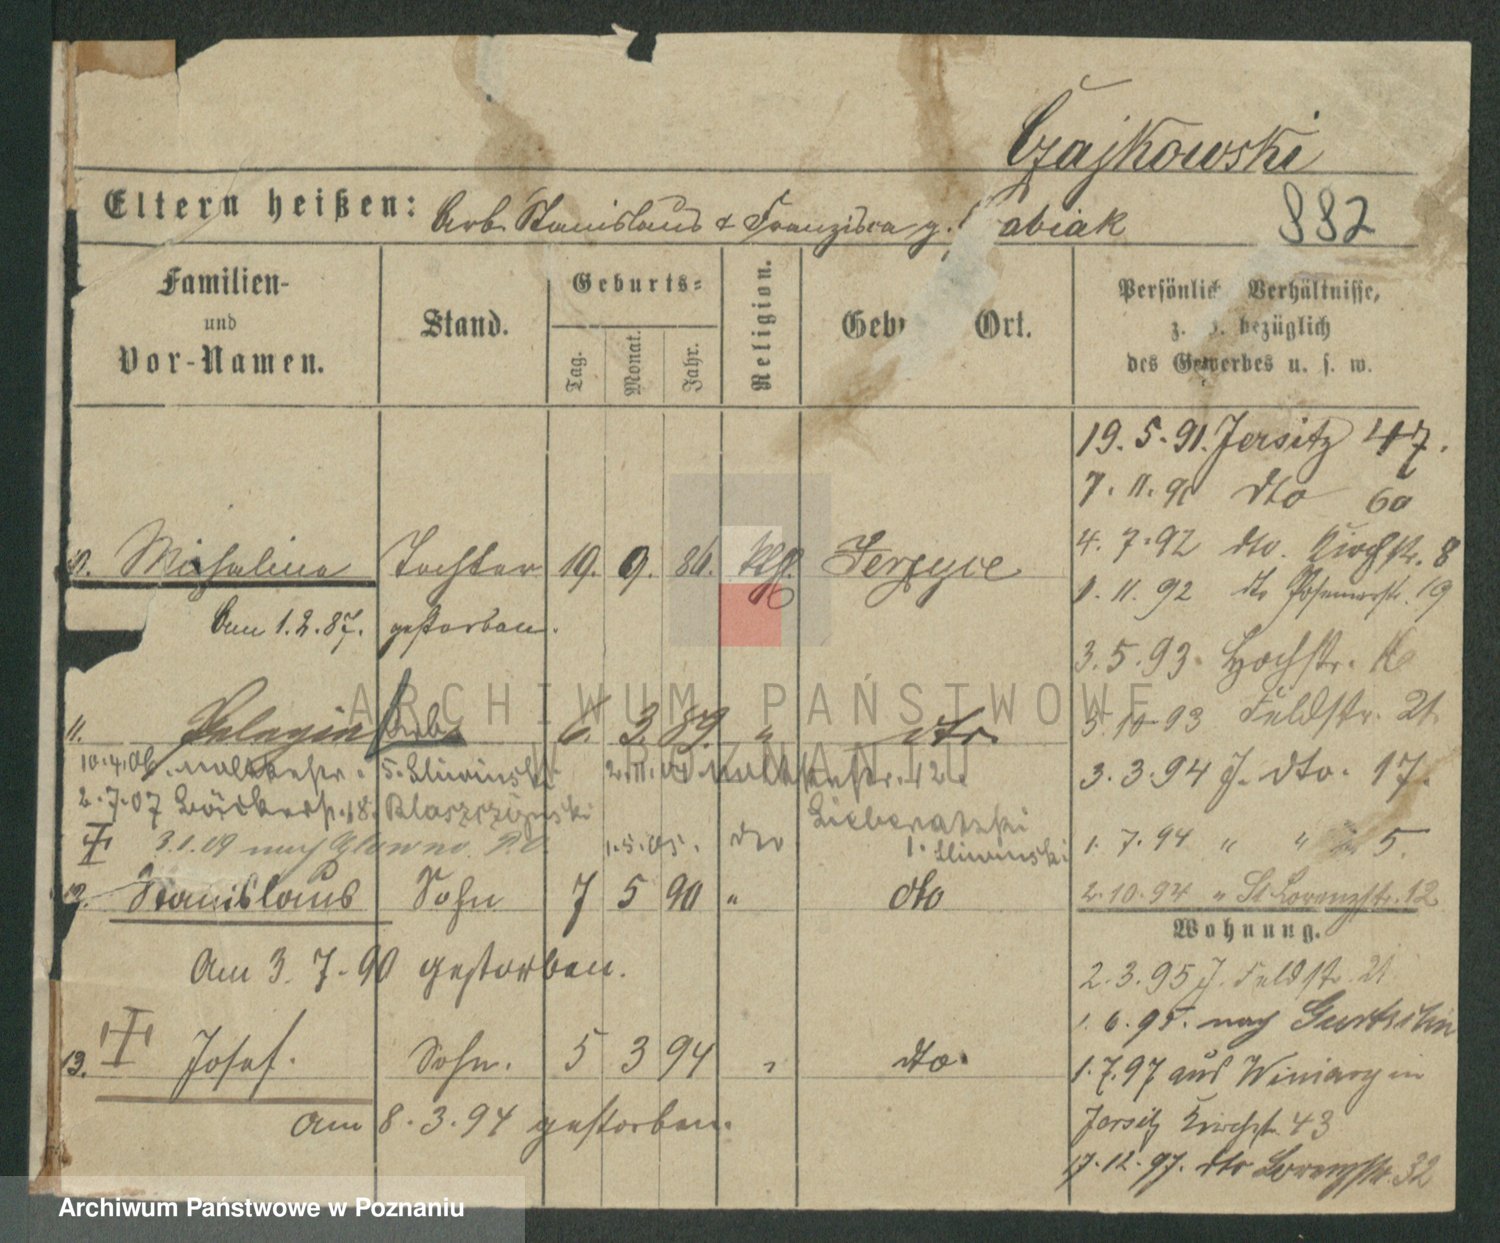 Czajkowski
Eltern heißen: Arb. Stanislaus & Franziska g. abiak 882
Familien- und Vor-Namen. Stand. Geburts= Tag. Monat. Jahr. Religion. Geb Ort. Persönlich Verhältnisse, z. B. bezüglich des Gewerbes u. s. w.
19.5.91. Jersitz 47.
7.11.91 dto 60
4.7.92 dto. Kirchstr. 8
10. Michalina Tochter 19. 9. 86. kth. Jerzyce
1.11.92 dto Posenerstr. 19
Am 1.2.87. gestorben.
3.5.93. Hochstr.
3.10.93 Feldstr. 21
11. Pelagia Arb. 6. 3. 89. " dto.
3.3.94 J. dto. 17.
10.4.06 5. Sliwinski
2.7.07 18. Blaszczynski
Lieberatzki
3.1.09 nach Glowno. 1.5.05. dto Sliwinski
1.7.94 " " 5.
12. Stanislaus Sohn 7 5 90 " dto
2.10.94 " St Lorenzstr. 12
Wohnung.
Am 3.7.90 gestorben.
2.3.95 J. Feldstr. 21
1.6.95. nach Gurtschin
13. Josef. Sohn. 5 3 94 " dto.
1.7.97 aus Winiary in
Jersitz Kirchstr. 43
Am 8.3.94 gestorben.
17.12.97. dto Lorenzstr. 32
ARCHIWUM PAŃSTWOWE
W POZNANIU
Archiwum Państwowe w Poznaniu